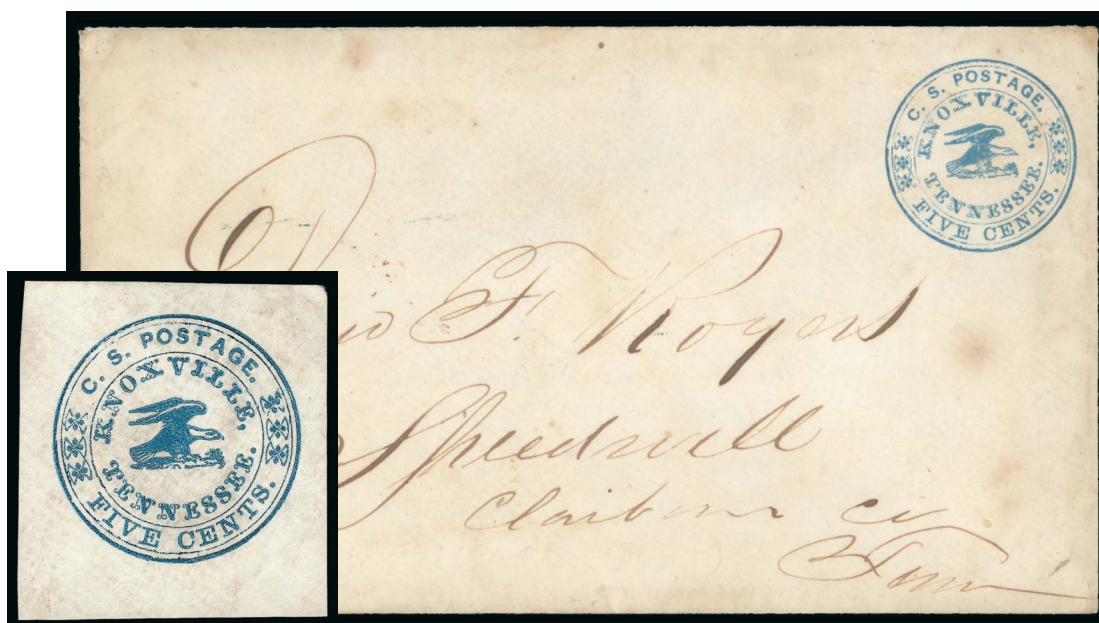 C. S. POSTAGE.
KNOXVILLE,
TENNESSEE.
FIVE CENTS.
F. Rogers
Speedwell
Claiborne Cy
Tenn
C. S. POSTAGE.
KNOXVILLE,
TENNESSEE.
FIVE CENTS.